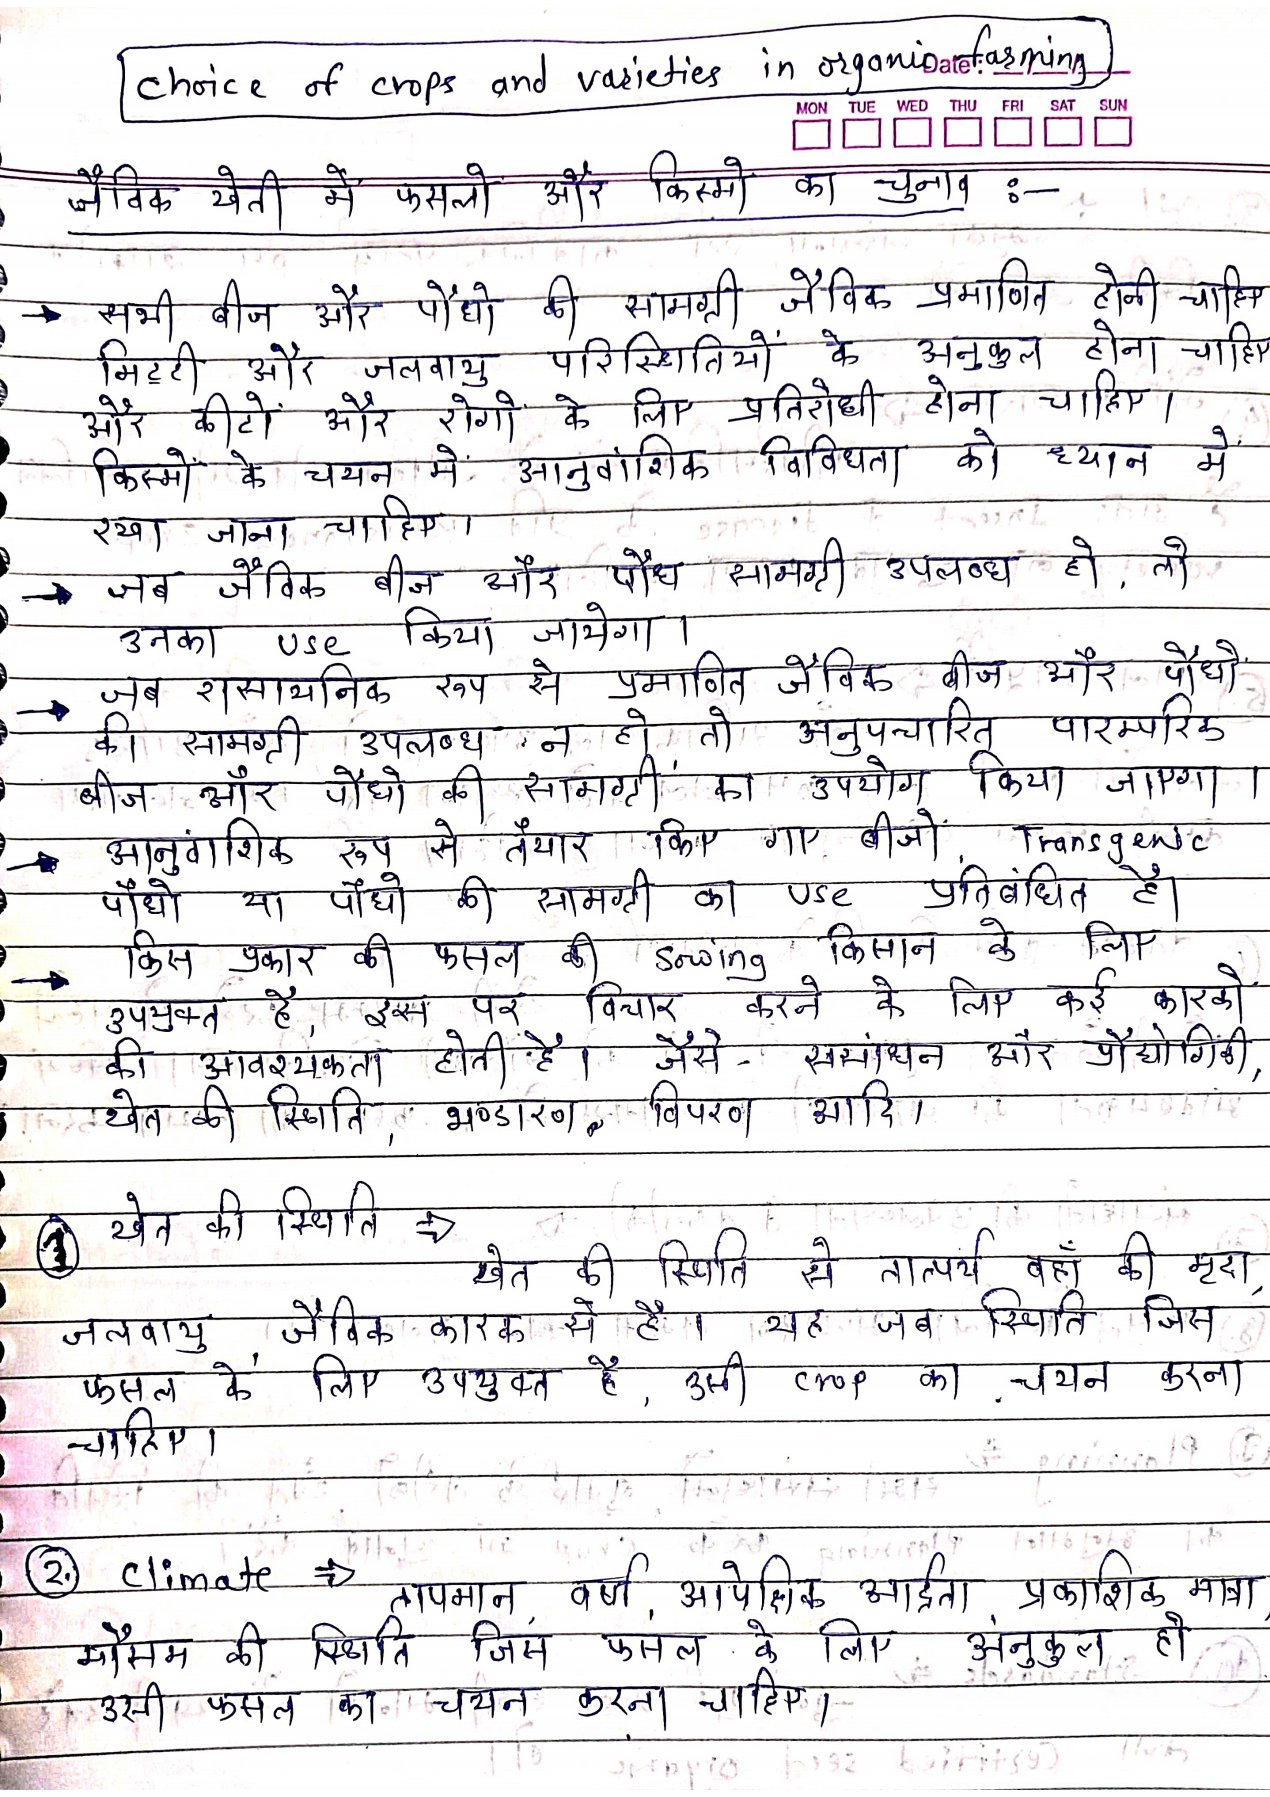 Choice of crops and varieties in organic farming
Date:
MON TUE WED THU FRI SAT SUN
जैविक खेती में फसलों और किस्मों का चुनाव :-
→ सभी बीज और पौधो की सामग्री जैविक प्रमाणित होनी चाहिए
मिट्टी और जलवायु परिस्थितियों के अनुकुल होना चाहिए
और कीटों और रोगों के लिए प्रतिरोधी होना चाहिए।
किस्मों के चयन में आनुवांशिक विविधता को ध्यान में
रखा जाना चाहिए।
→ जब जैविक बीज और पौध सामग्री उपलब्ध हो, तो
उनका use किया जायेगा।
→ जब रासायनिक रूप से प्रमाणित जैविक बीज और पौधों
की सामग्री उपलब्ध न हो तो अनुपचारित पारम्परिक
बीज और पौधो की सामग्री का उपयोग किया जाएगा।
→ आनुवांशिक रूप से तैयार किए गए बीजो, Transgenic
पौधो या पौधो की सामग्री का use प्रतिबंधित है।
→ किस प्रकार की फसल की Sowing किसान के लिए
उपयुक्त है, इस पर विचार करने के लिए कई कारकों
की आवश्यकता होती है। जैसे - ससांधन और प्रौद्योगिकी,
खेत की स्थिति, भण्डारण, विपरण आदि।
① खेत की स्थिति ⇒
खेत की स्थिति से तात्पर्य वहाँ की मृदा,
जलवायु, जैविक कारक से है। यह जब स्थिति जिस
फसल के लिए उपयुक्त है, उसी crop का चयन करना
चाहिए।
②. Climate ⇒
तापमान, वर्षा, आपेक्षिक आर्द्रता, प्रकाशिक मात्रा,
मौसम की स्थिति जिस फसल के लिए अनुकुल हो
उसी फसल का चयन करना चाहिए।